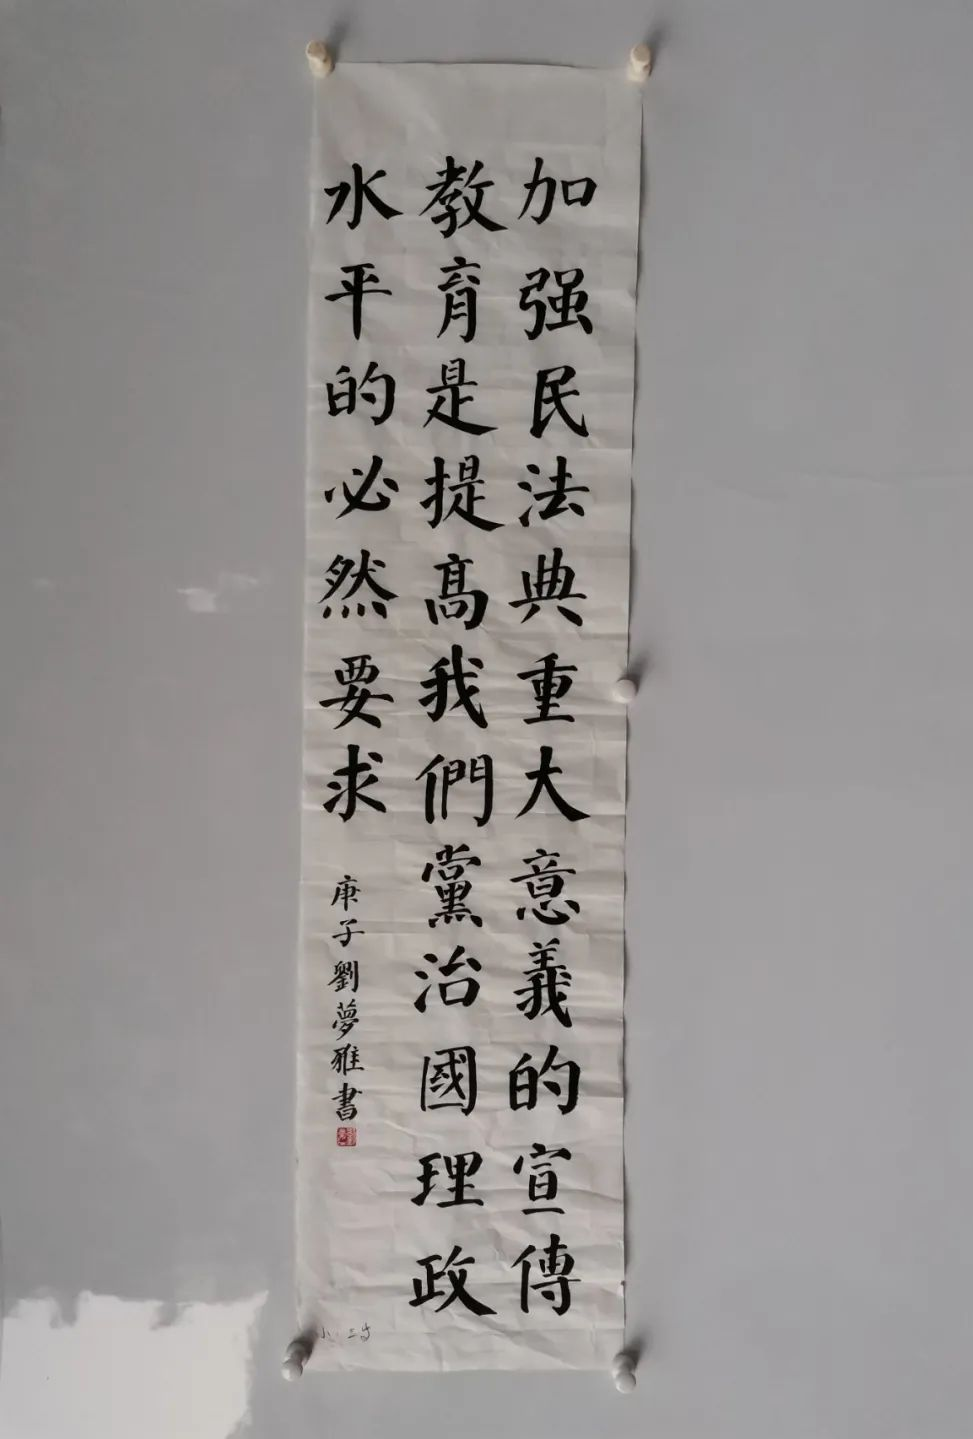 加强民法典重大意義的宣傳
教育是提高我們黨治國理政
水平的必然要求
庚子劉夢雅書